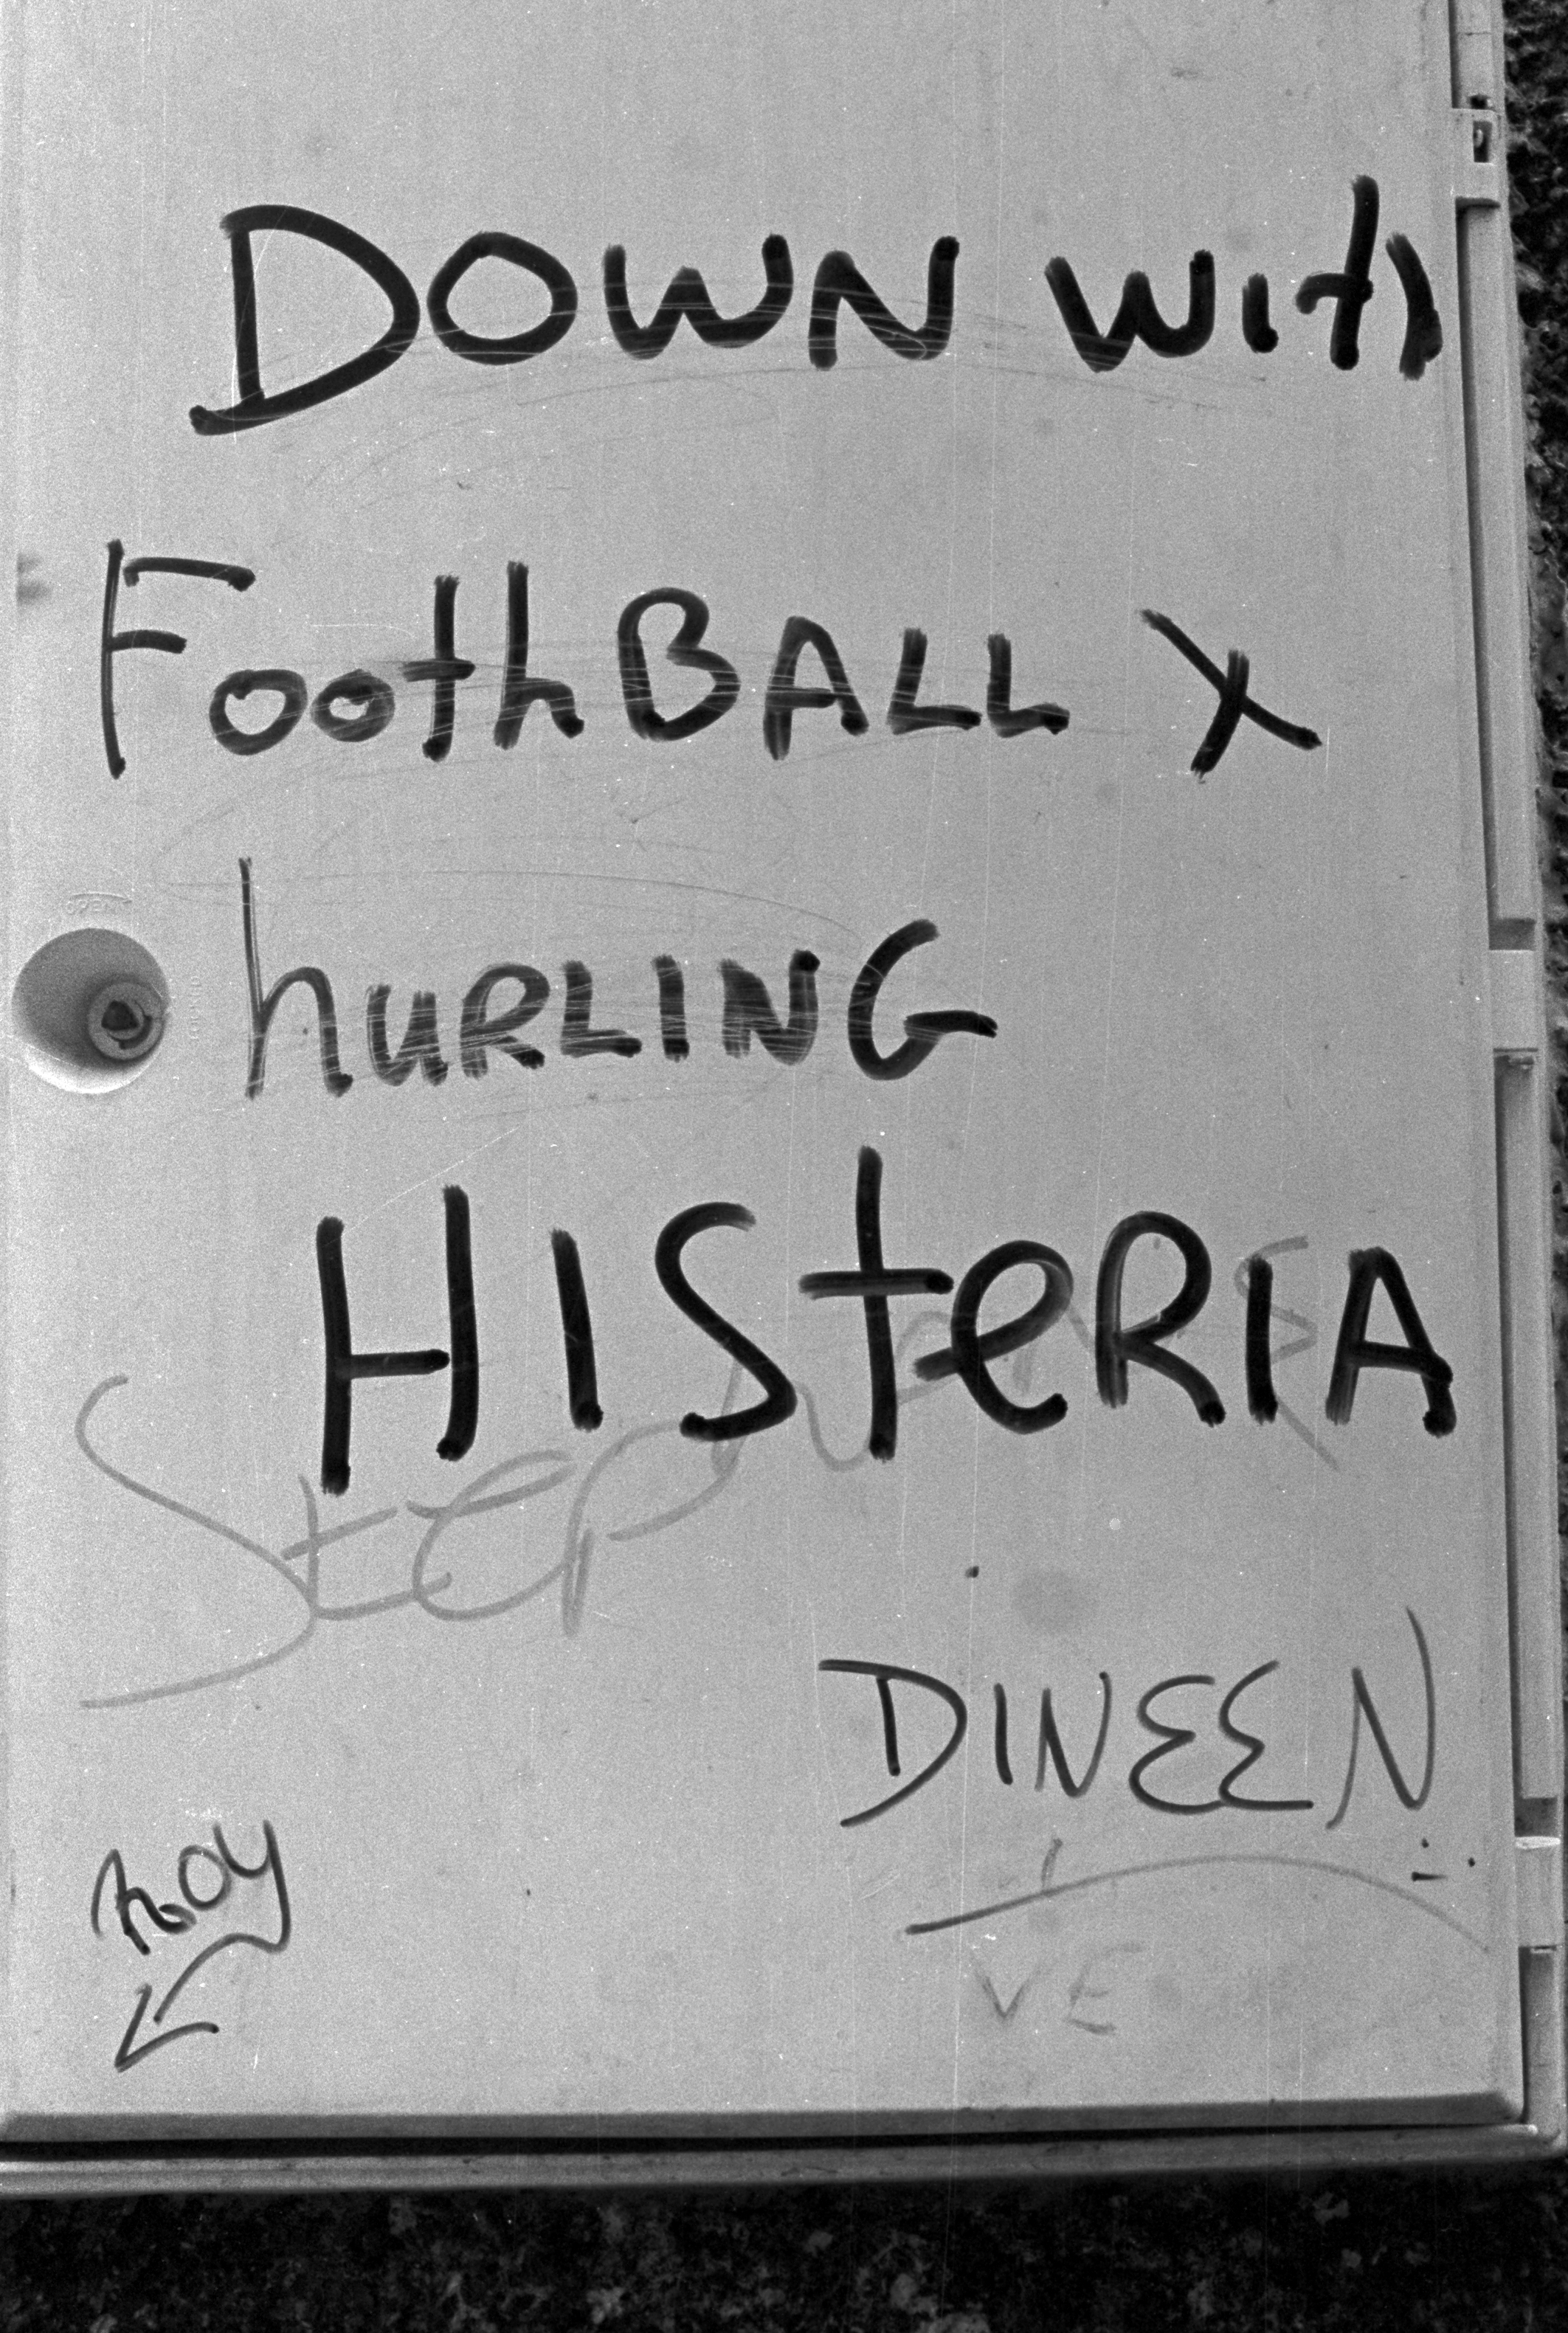 DOWN with
FoothBALL X
hURLING
HISteRIA
SteP
DINEEN
ROY
VE
OPEN